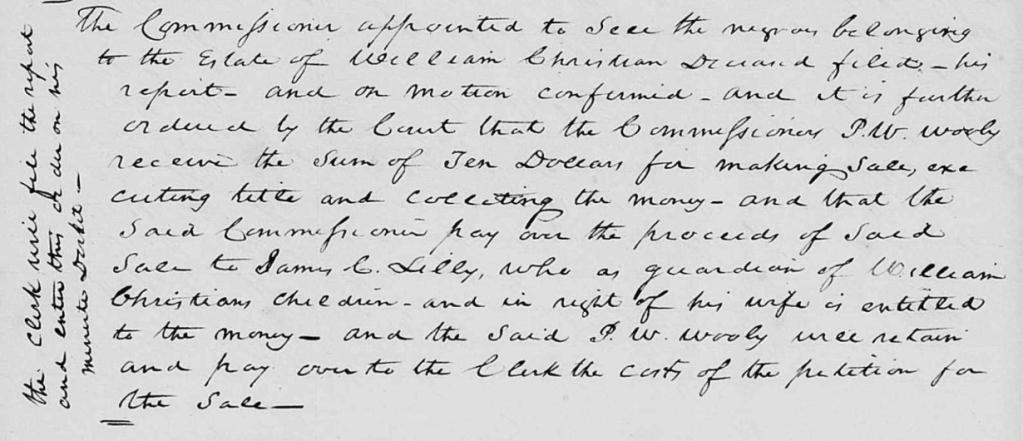 The Commissioner appointed to Sell the negroes belonging
to the Estate of William Christian Deceased filed - his
report - and on motion confirmed - and it is further
ordered by the Court that the Commissioners P. W. Wooly
receive the Sum of Ten Dollars for making Sale, exe
cuting title and collecting the money - and that the
Said Commissioner pay over the proceeds of Said
Sale to James C. Lilly, who as guardian of William
Christians children - and in right of his wife is entitled
to the money - and the Said P. W. Wooly will retain
and pay over to the Clerk the costs of the petition for
the Sale -
the Clerk will file the report
and enter this order on his
minute Docket -